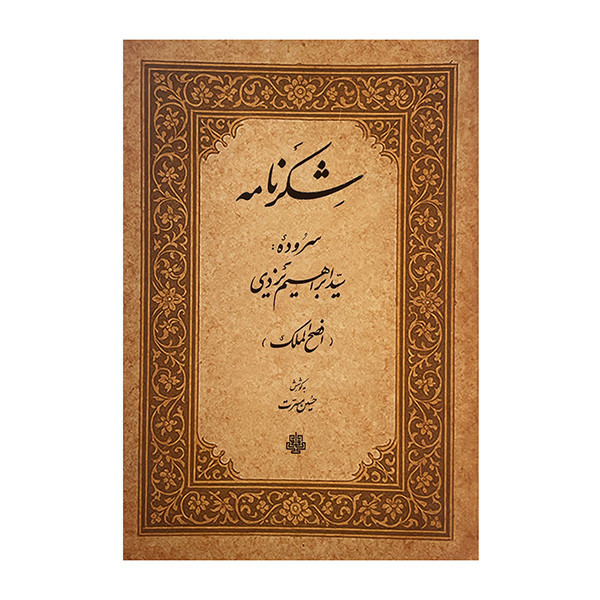 شِکَرنامه
سروده:
سیّد ابراهیم یزدی
(افصح‌الملک)
به کوشش
حسین مسرت